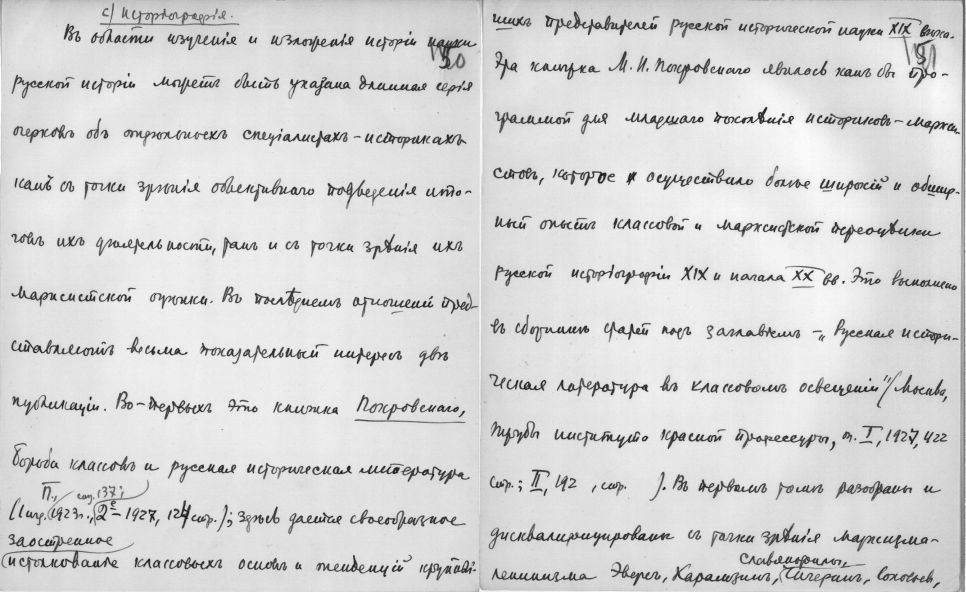 с) Историографія.
Въ области изученія и изложенія исторіи науки
русской исторіи можетъ быть указана длинная серія
очерковъ объ отдѣльныхъ спеціалистахъ-историкахъ
какъ съ точки зрѣнія объективнаго подведенія ито-
говъ ихъ дѣятельности, такъ и съ точки зрѣнія ихъ
марксистской оцѣнки. Въ послѣднемъ отношеніи пред-
ставляютъ весьма показательный интересъ двѣ
публикаціи. Во-первыхъ это книжка Покровскаго,
борьба классовъ и русская историческая литература
П., стр. 137;
(1923 г., 2е - 1927, 124 стр.); Здѣсь дается своеобразное
заостренное
истолкованіе классовыхъ основъ и тенденцій крупнѣй-
шихъ представителей русской исторической науки XIX вѣка.
Эта книжка М. Н. Покровскаго явилось какъ бы про-
граммой для младшаго поколѣнія историковъ-маркси-
стовъ, которое осуществило болѣе широкій и обшир-
ный опытъ классовой и марксистской переоцѣнки
русской исторіографіи XIX и начала XX вв. Это выполнено
въ сборникѣ статей подъ заглавіемъ - „Русская истори-
ческая литература въ классовомъ освещеніи" (Москва,
Труды института красной профессуры, т. I, 1927, 422
стр.; II, 192 , стр. ). Въ первомъ томѣ разобраны и
дисквалифицированы съ точки зрѣнія марксизма-
славянофилы,
ленинизма Эверсъ, Карамзинъ, Чичеринъ, Соловьевъ,